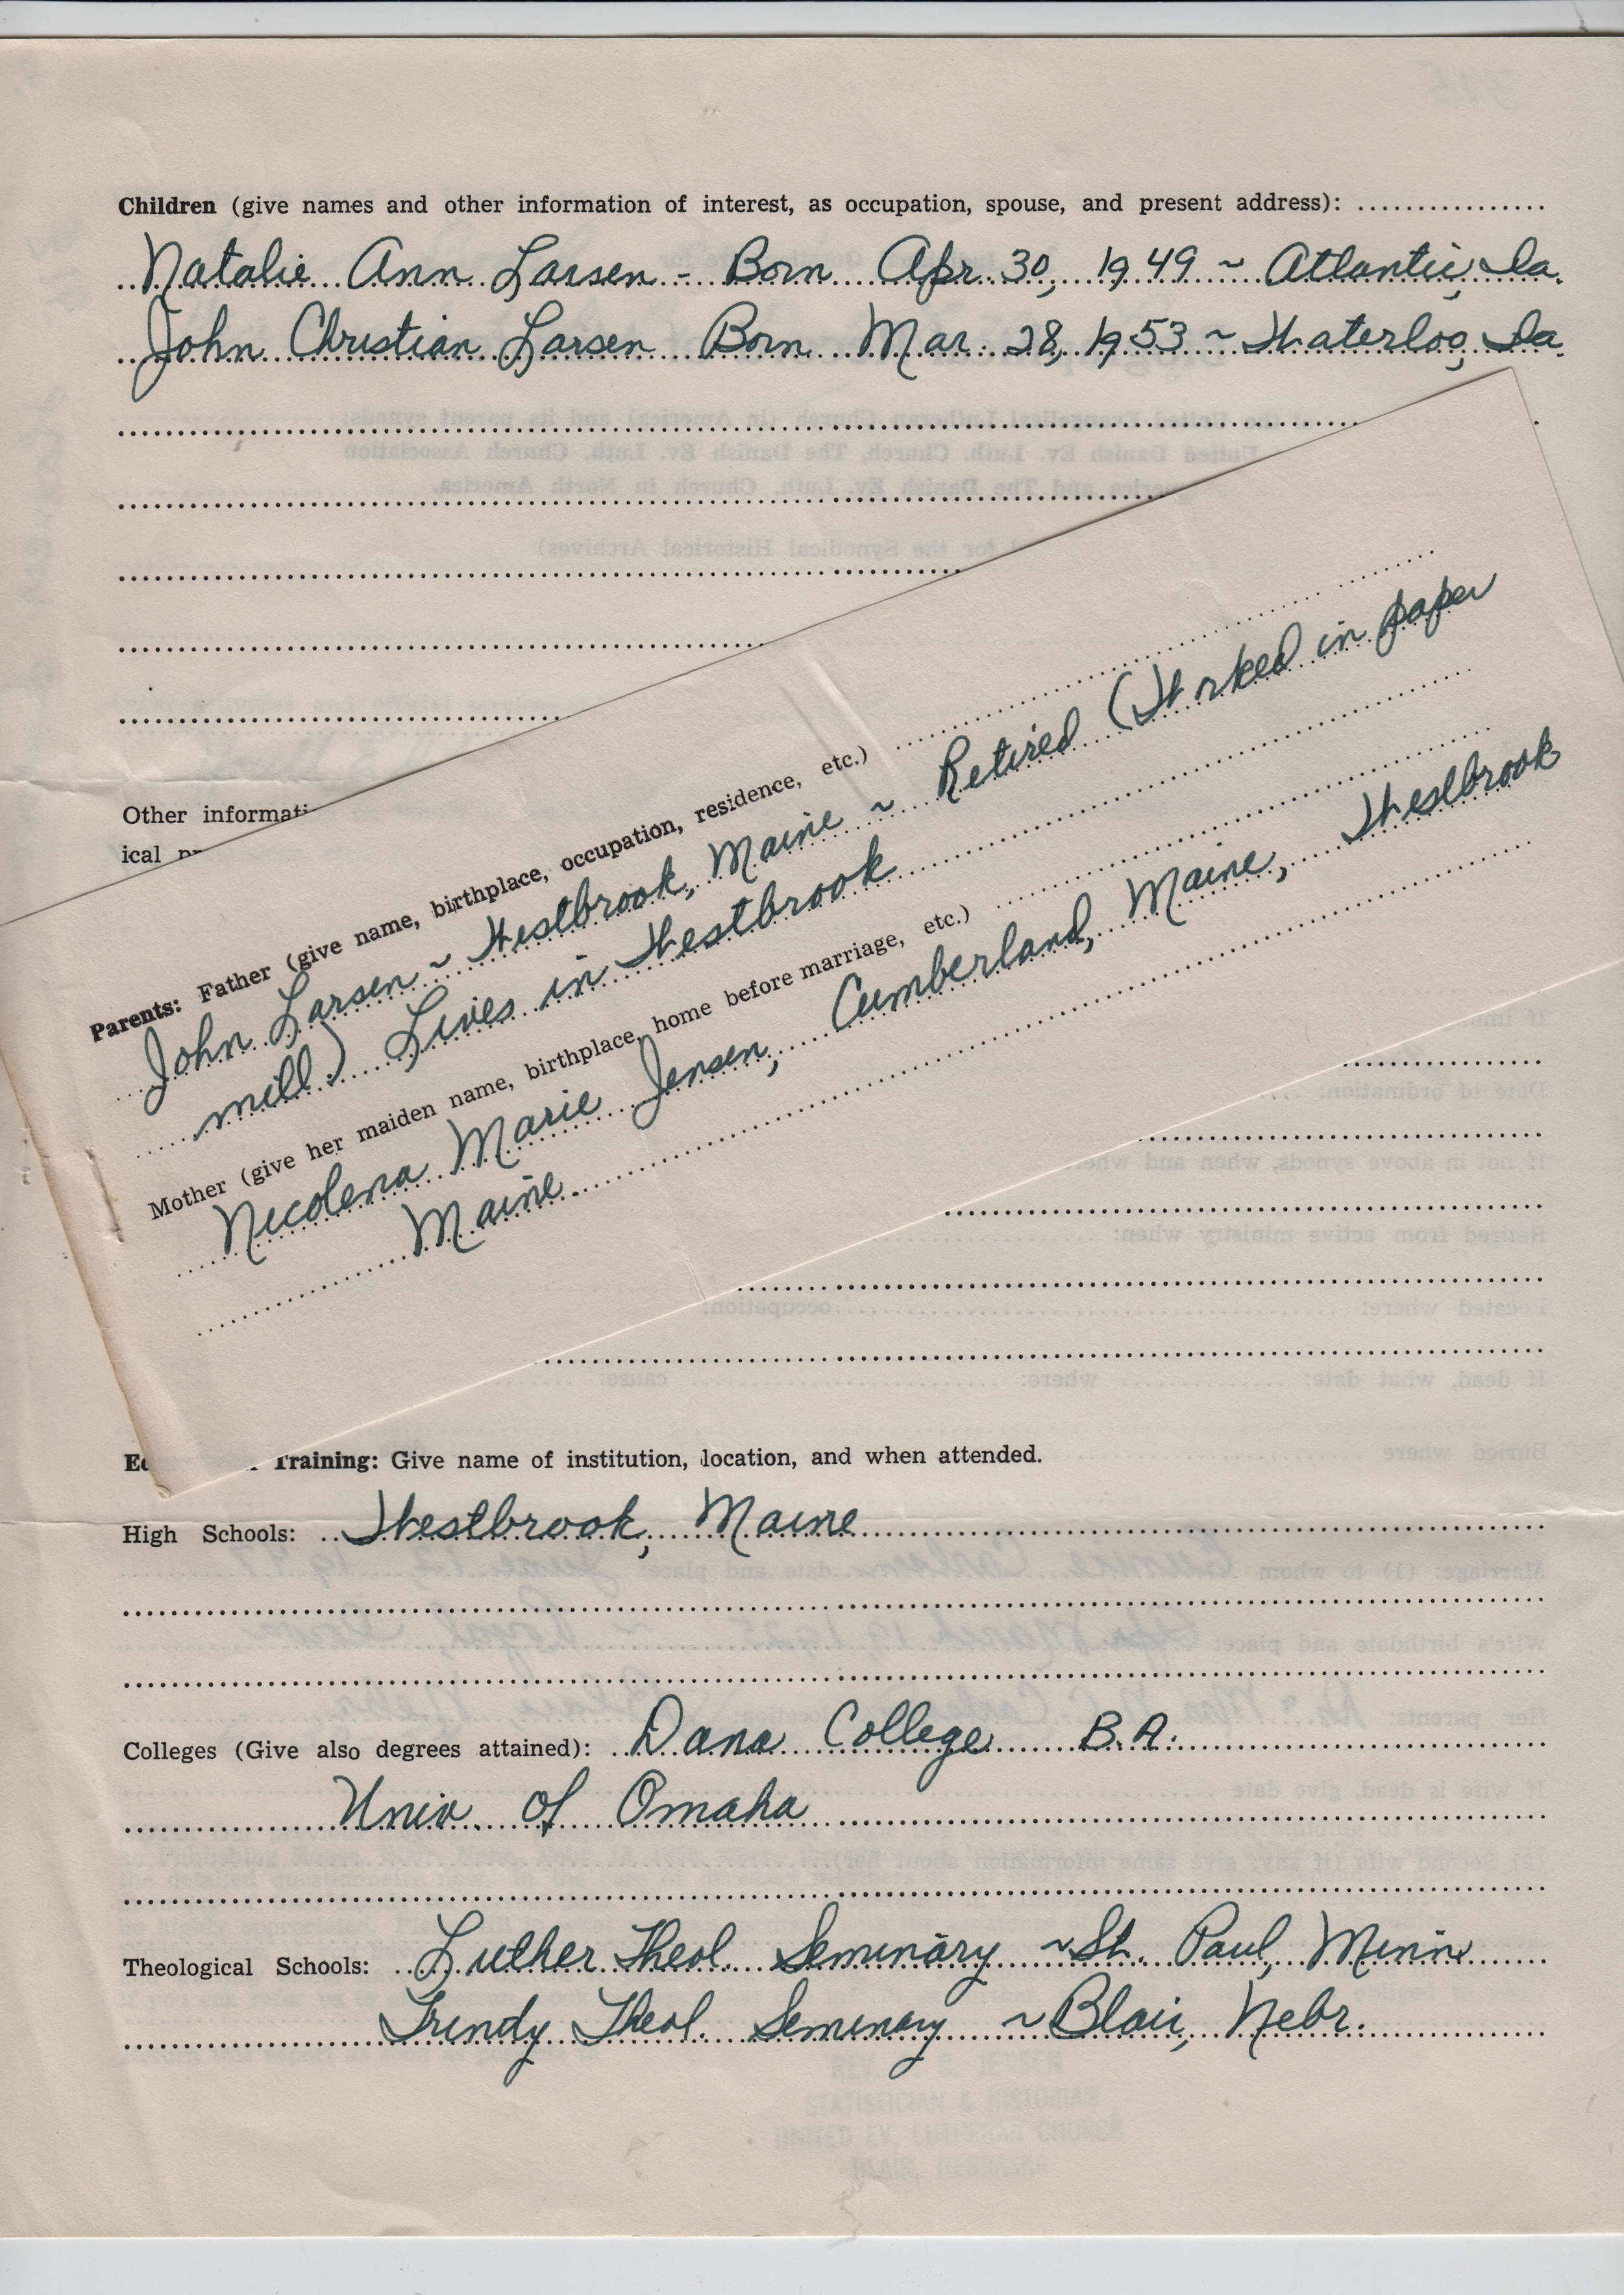 Children (give names and other information of interest, as occupation, spouse, and present address):
Natalie Ann Larsen - Born Apr. 30, 1949 ~ Atlantic, Ia.
John Christian Larsen Born Mar. 28, 1953 ~ Waterloo, Ia.
Other informati
ical
Parents: Father (give name, birthplace, occupation, residence, etc.)
John Larsen ~ Westbrook, Maine ~ Retired (Worked in paper
mill) Lives in Westbrook
Mother (give her maiden name, birthplace, home before marriage, etc.)
Nicolena Marie Jensen, Cumberland, Maine, Westbrook
Maine
Training: Give name of institution, location, and when attended.
High Schools: Westbrook, Maine
Colleges (Give also degrees attained): Dana College B.A.
Univ. of Omaha
Theological Schools: Luther Theol. Seminary ~ St. Paul, Minn
Trinity Theol. Seminary ~ Blair, Nebr.